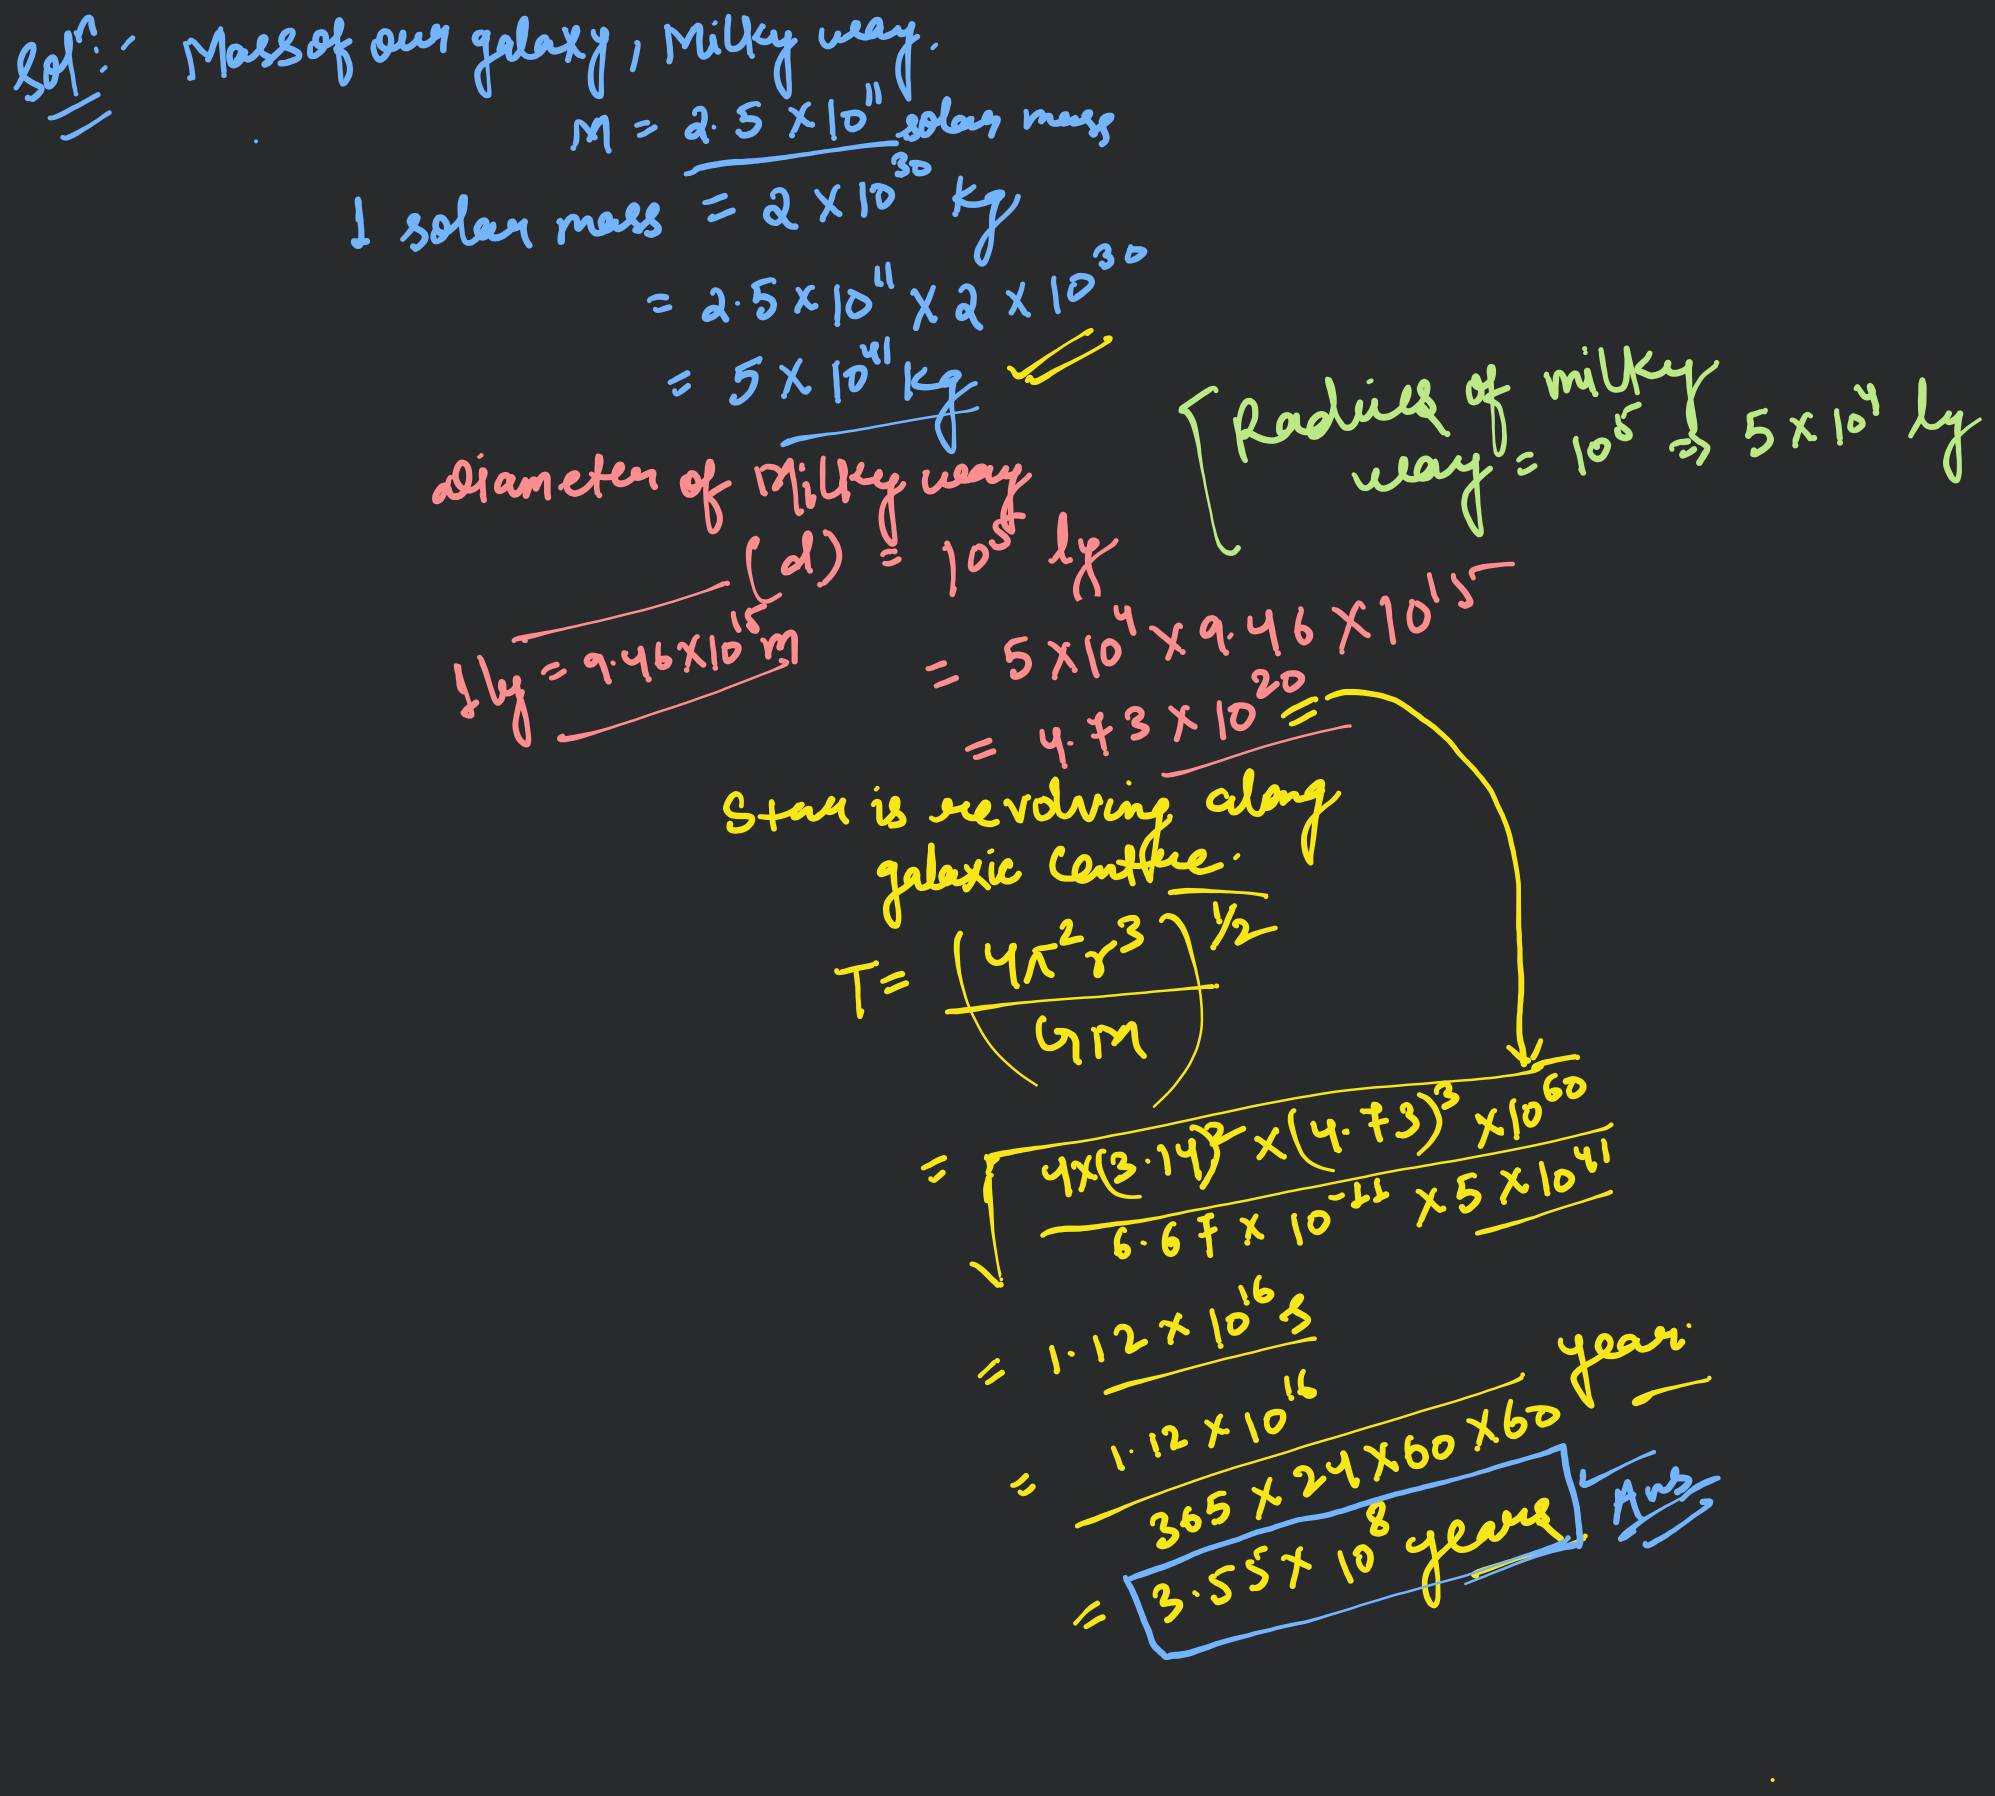 Solⁿ:- Mass of our galaxy, Milky way.
M = 2.5 × 10¹¹ solar mass
1 solar mass = 2 × 10³⁰ kg
= 2.5 × 10¹¹ × 2 × 10³⁰
= 5 × 10⁴¹ kg
[Radius of milky
way = 10⁵ ⇒ 5 × 10⁴ ly
diameter of Milky way
(d) = 10⁵ ly
1 ly = 9.46 × 10¹⁵ m
= 5 × 10⁴ × 9.46 × 10¹⁵
= 4.73 × 10²⁰
Star is revolving along
galaxic Centre.
T = (4π²r³ / GM)^1/2
= √(4×(3.14)² × (4.73)³ × 10⁶⁰ / 6.67 × 10⁻¹¹ × 5 × 10⁴¹)
= 1.12 × 10¹⁶ s
= 1.12 × 10¹⁶ / 365 × 24 × 60 × 60 year.
= 3.55 × 10⁸ years Ans